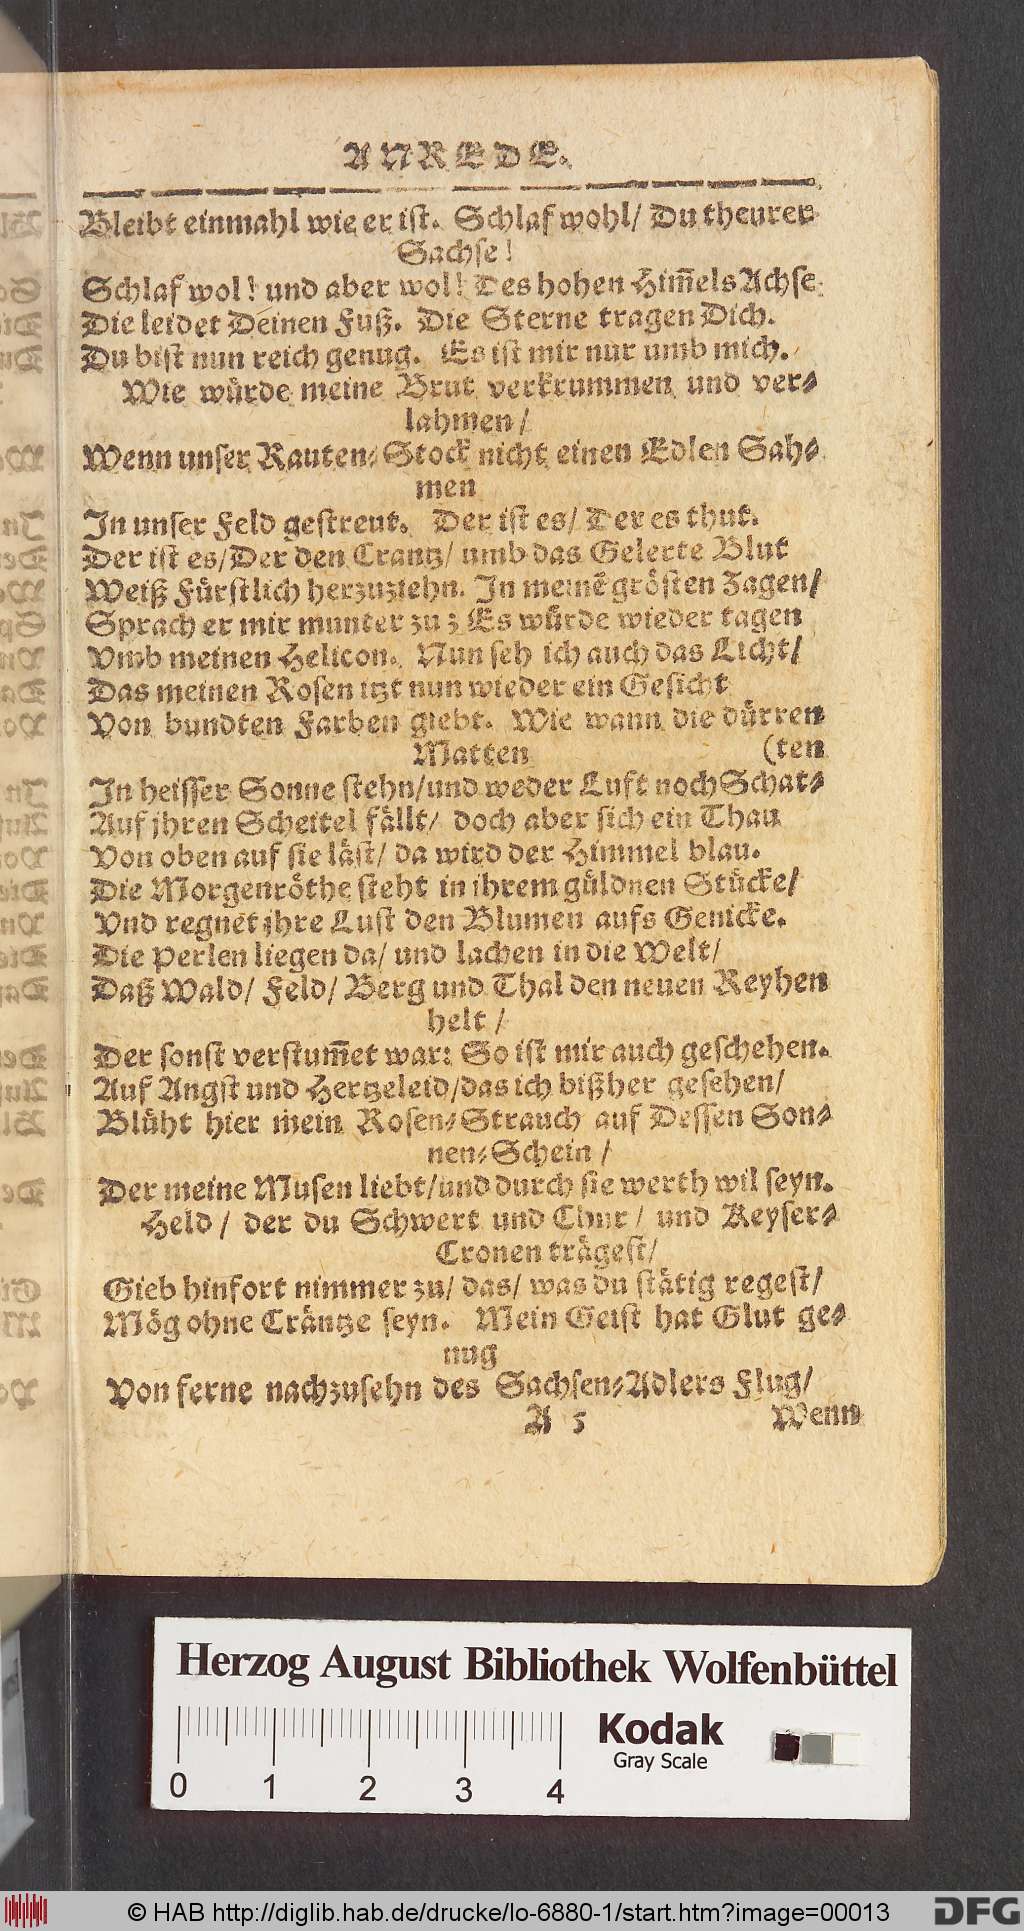 ANREDE.
Bleibt einmahl wie er ist. Schlaf wohl/ Du theurer
Sachse!
Schlaf wol! und aber wol! Des hohen Him̅els Achse
Die leidet Deinen Fuß. Die Sterne tragen Dich.
Du bist nun reich genug. Es ist mir nur umb mich.
Wie wuͤrde meine Brut verkrummen und ver⸗
lahmen/
Wenn unser Rauten⸗Stock nicht einen Edlen Sah⸗
men
In unser Feld gestreut. Der ist es/ Der es thut.
Der ist es/ Der den Crantz/ umb das Gelerte Blut
Weiß Fuͤrstlich herzuziehn. In meinē groͤsten Zagen/
Sprach er mir munter zu; Es wuͤrde wieder tagen
Vmb meinen Helicon. Nun seh ich auch das Licht/
Das meinen Rosen itzt nun wieder ein Gesicht
Von bundten Farben giebt. Wie wann die duͤrren
Matten (ten
In heisser Sonne stehn/ und weder Luft noch Schat⸗
Auf jhren Scheitel faͤllt/ doch aber sich ein Thau
Von oben auf sie laͤst/ da wird der Himmel blau.
Die Morgenroͤthe steht in ihrem guͤldnen Stuͤcke/
Vnd regnet jhre Lust den Blumen aufs Genicke.
Die Perlen liegen da/ und lachen in die Welt/
Daß Wald/ Feld/ Berg und Thal den neuen Reyhen
helt/
Der sonst verstum̅et war: So ist mir auch geschehen.
Auf Angst und Hertzeleid/ das ich bißher gesehen/
Bluͤht hier mein Rosen⸗Strauch auf Dessen Son⸗
nen⸗Schein/
Der meine Musen liebt/ und durch sie werth wil seyn.
Held/ der du Schwert und Chur/ und Keyser⸗
Cronen traͤgest/
Gieb hinfort nimmer zu/ das/ was du staͤtig regest/
Moͤg ohne Craͤntze seyn. Mein Geist hat Glut ge⸗
nug
Von ferne nachzusehn des Sachsen⸗Adlers Flug/
A 5 Wenn
Herzog August Bibliothek Wolfenbüttel
Kodak
Gray Scale
0 1 2 3 4
© HAB http://diglib.hab.de/drucke/lo-6880-1/start.htm?image=00013
DFG